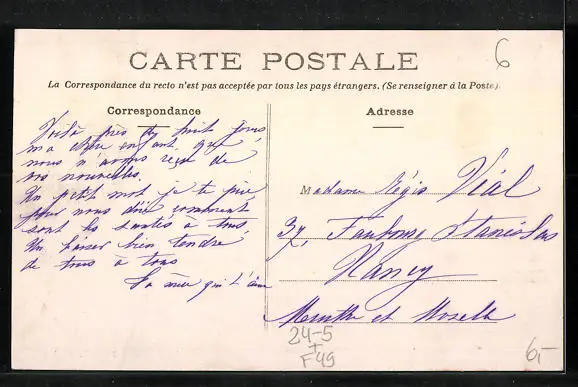 6
CARTE POSTALE
La Correspondance du recto n'est pas acceptée par tous les pays étrangers. (Se renseigner à la Poste).
Correspondance
Adresse
Voilà près de huit jours
ma chère enfant, que
nous n'avons reçu de
vos nouvelles.
Un petit mot je te prie
pour nous dire comment
sont les santés à tous.
Un baiser bien tendre
de tous à tous
Ta mère qui t'aime
Madame Régis Vial
37, Faubourg Stanislas
Nancy
Meurthe et Moselle
24-5
+
F49
6,-